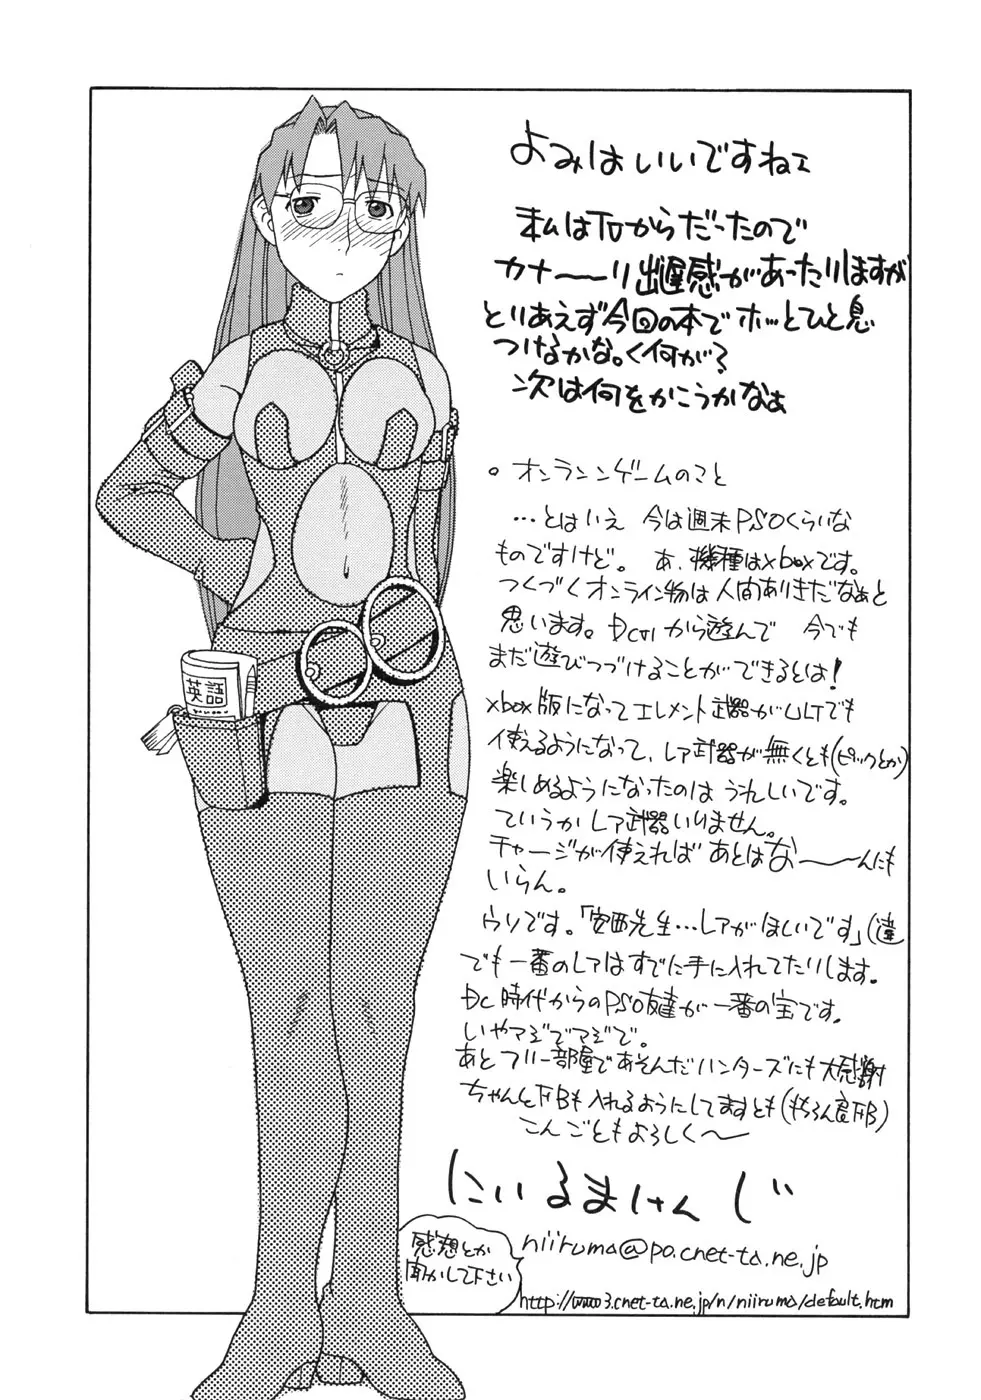 よみはいいですねェ
私はTVからだったので
カナ〜〜リ出遅感があったりしますが
とりあえず今回の本でホッとひと息
つけるかな。く何が?
次は何をかこうかなぁ
英語
○ オンランンゲームのこと
…とはいえ 今は週末PSOくらいな
ものですけど。 あ、機種はxboxです。
つくづくオンライン物は人間ありきだなぁと
思います。DCπ1から遊んで 今でも
まだ遊びつづけることができるとは!
xbox版になってエレメント武器がULTでも
使えるようになって、レア武器が無くとも(ピックとか)
楽しめるようになったのは うれしいです。
ていうかレア武器いりません。
チャージが使えれば あとはな〜〜んにも
いらん。
ウソです。「安西先生…レアがほしいです」(違
でも一番のレアはすでに手に入れてたりします。
DC時代からのPSO友達が一番の宝です。
いやマジでマジで。
あとフリー部屋であそんだハンターズにも大感謝
ちゃんとFBも入れるようにしてますとも(もちろん度FB)
こんごともよろしく〜
にいるまけんじ
感想とか
聞かして下さい
niiruma@po.cnet-ta.ne.jp
http://www3.cnet-ta.ne.jp/n/niiruma/default.htm